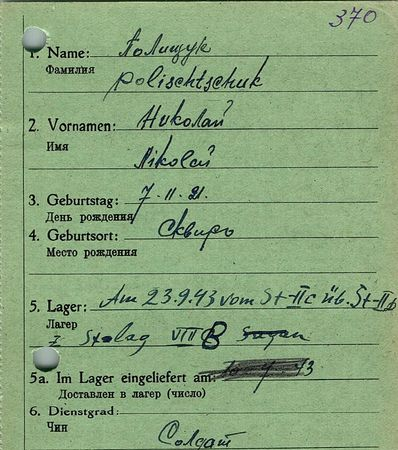 370
1. Name: Полищук
Фамилия
Polischtschuk
2. Vornamen: Николай
Имя
Nikolай
3. Geburtstag: 7. II. 21.
День рождения
4. Geburtsort: Сквира
Место рождения
5. Lager: Am 23.9.43 vom St-IIc üb. St-IIb
Лагер
Stalag VIII B Sagan
5a. Im Lager eingeliefert am: 43
Доставлен в лагер (число)
6. Dienstgrad:
Чин
Солдат